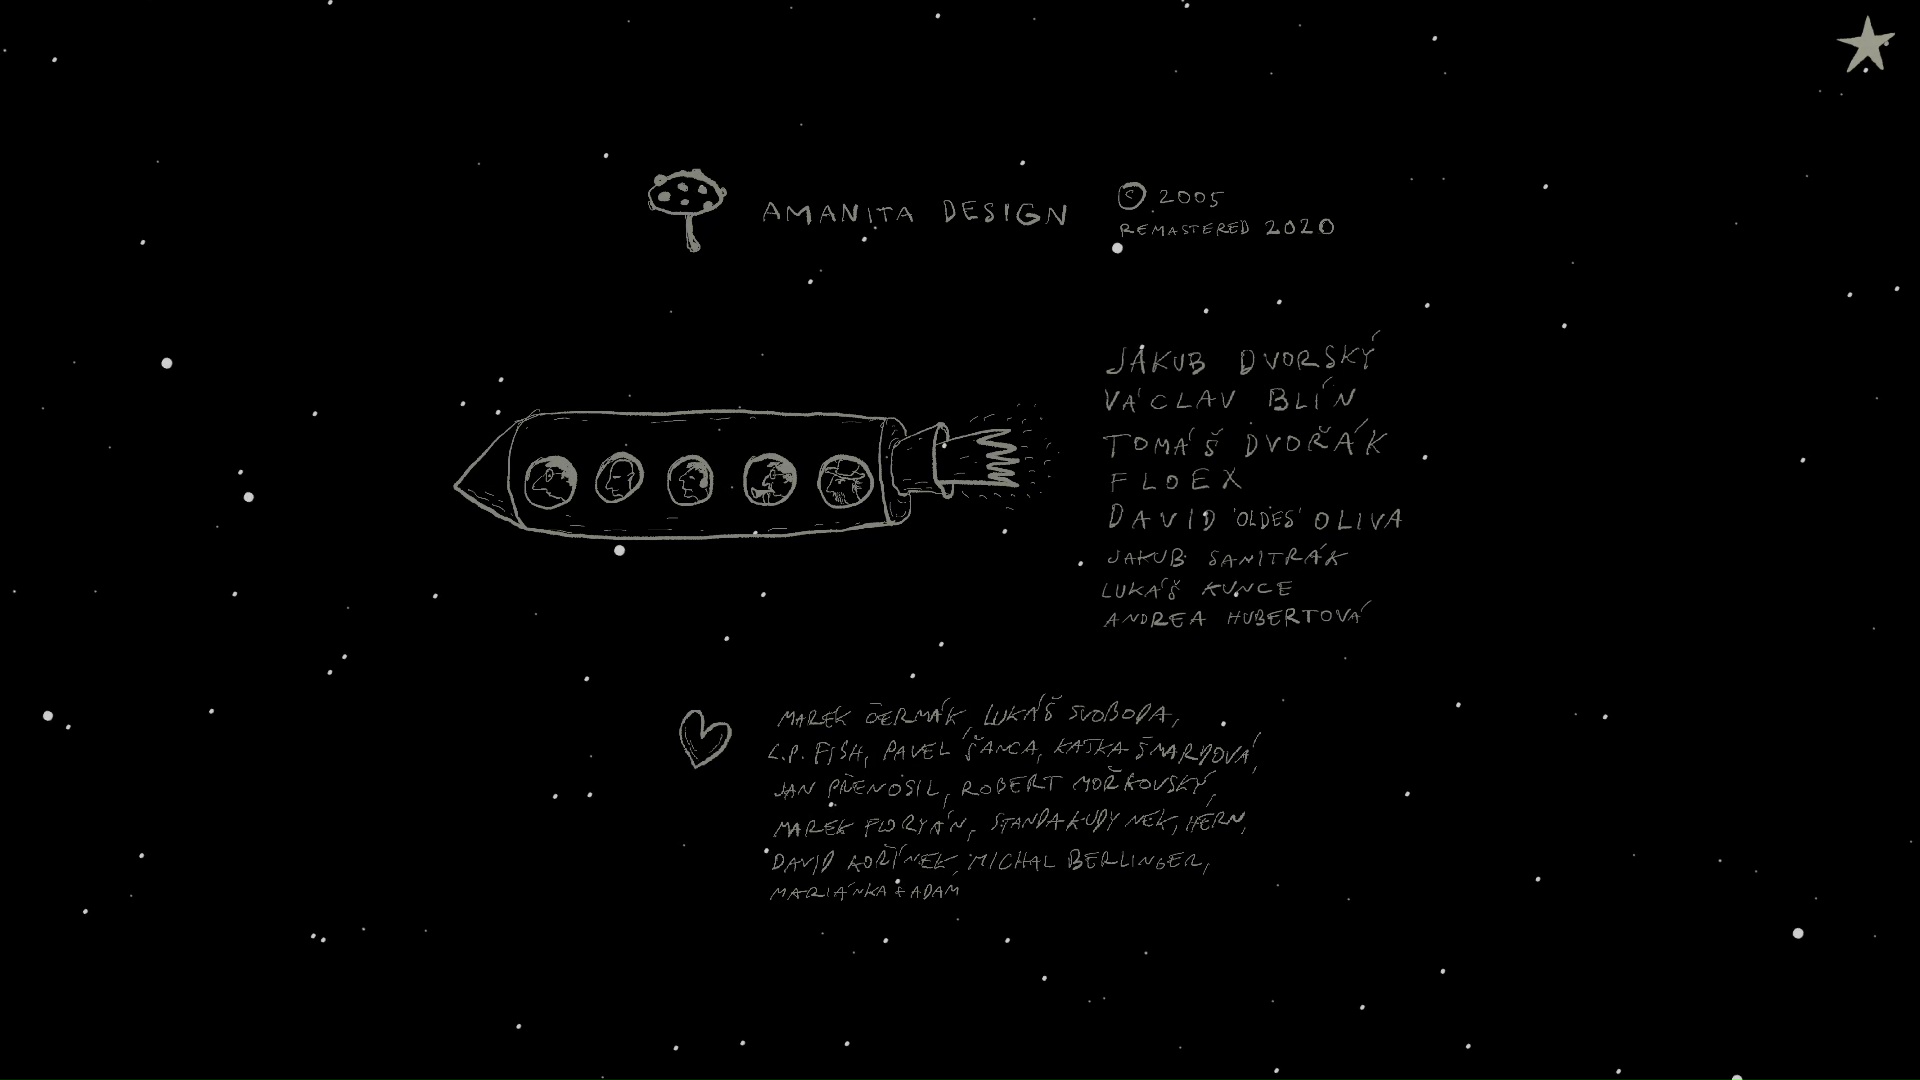 AMANITA DESIGN
© 2005
REMASTERED 2020
JAKUB DVORSKÝ
VÁCLAV BLÍN
TOMÁŠ DVOŘÁK
FLOEX
DAVID 'OLDES' OLIVA
JAKUB SANITRÁK
LUKÁŠ KUNCE
ANDREA HUBERTOVÁ
MAREK ČERMÁK, LUKÁŠ SVOBODA,
L.P. FISH, PAVEL ŠANCA, KATKA ŠMARDOVÁ,
JAN PŘENOSIL, ROBERT MOŘKOVSKÝ,
MAREK FLORYÁN, STANDA KUDYNEK, HÉRN,
DAVID KOŘÍNEK, MICHAL BERLINGER,
MARIÁNKA + ADAM